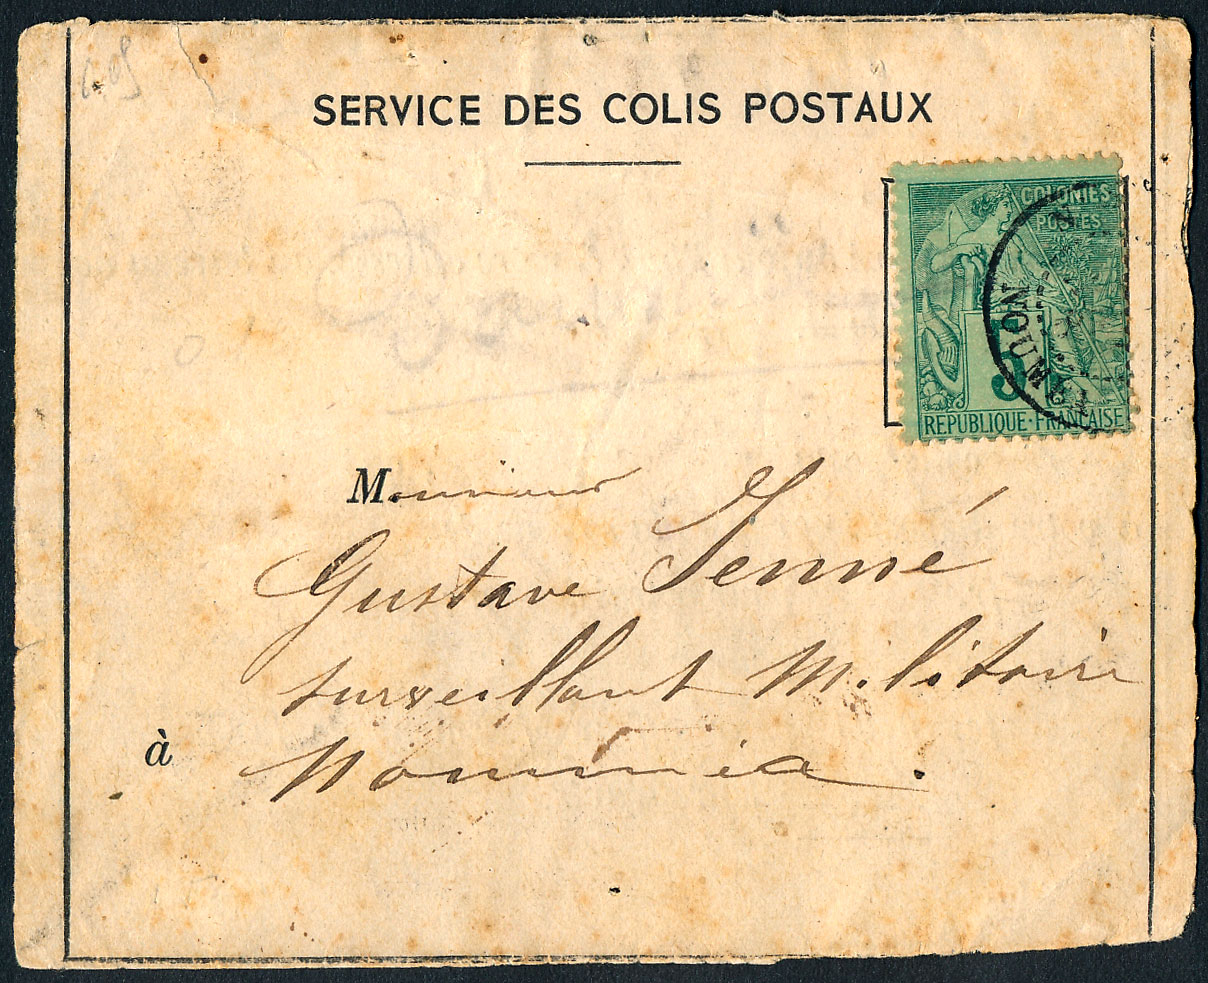 SERVICE DES COLIS POSTAUX
COLONIES
POSTES
5
REPUBLIQUE·FRANCAISE
NOUM
Monsieur
Gustave Jenné
surveillant Militaire
à Nouméa.